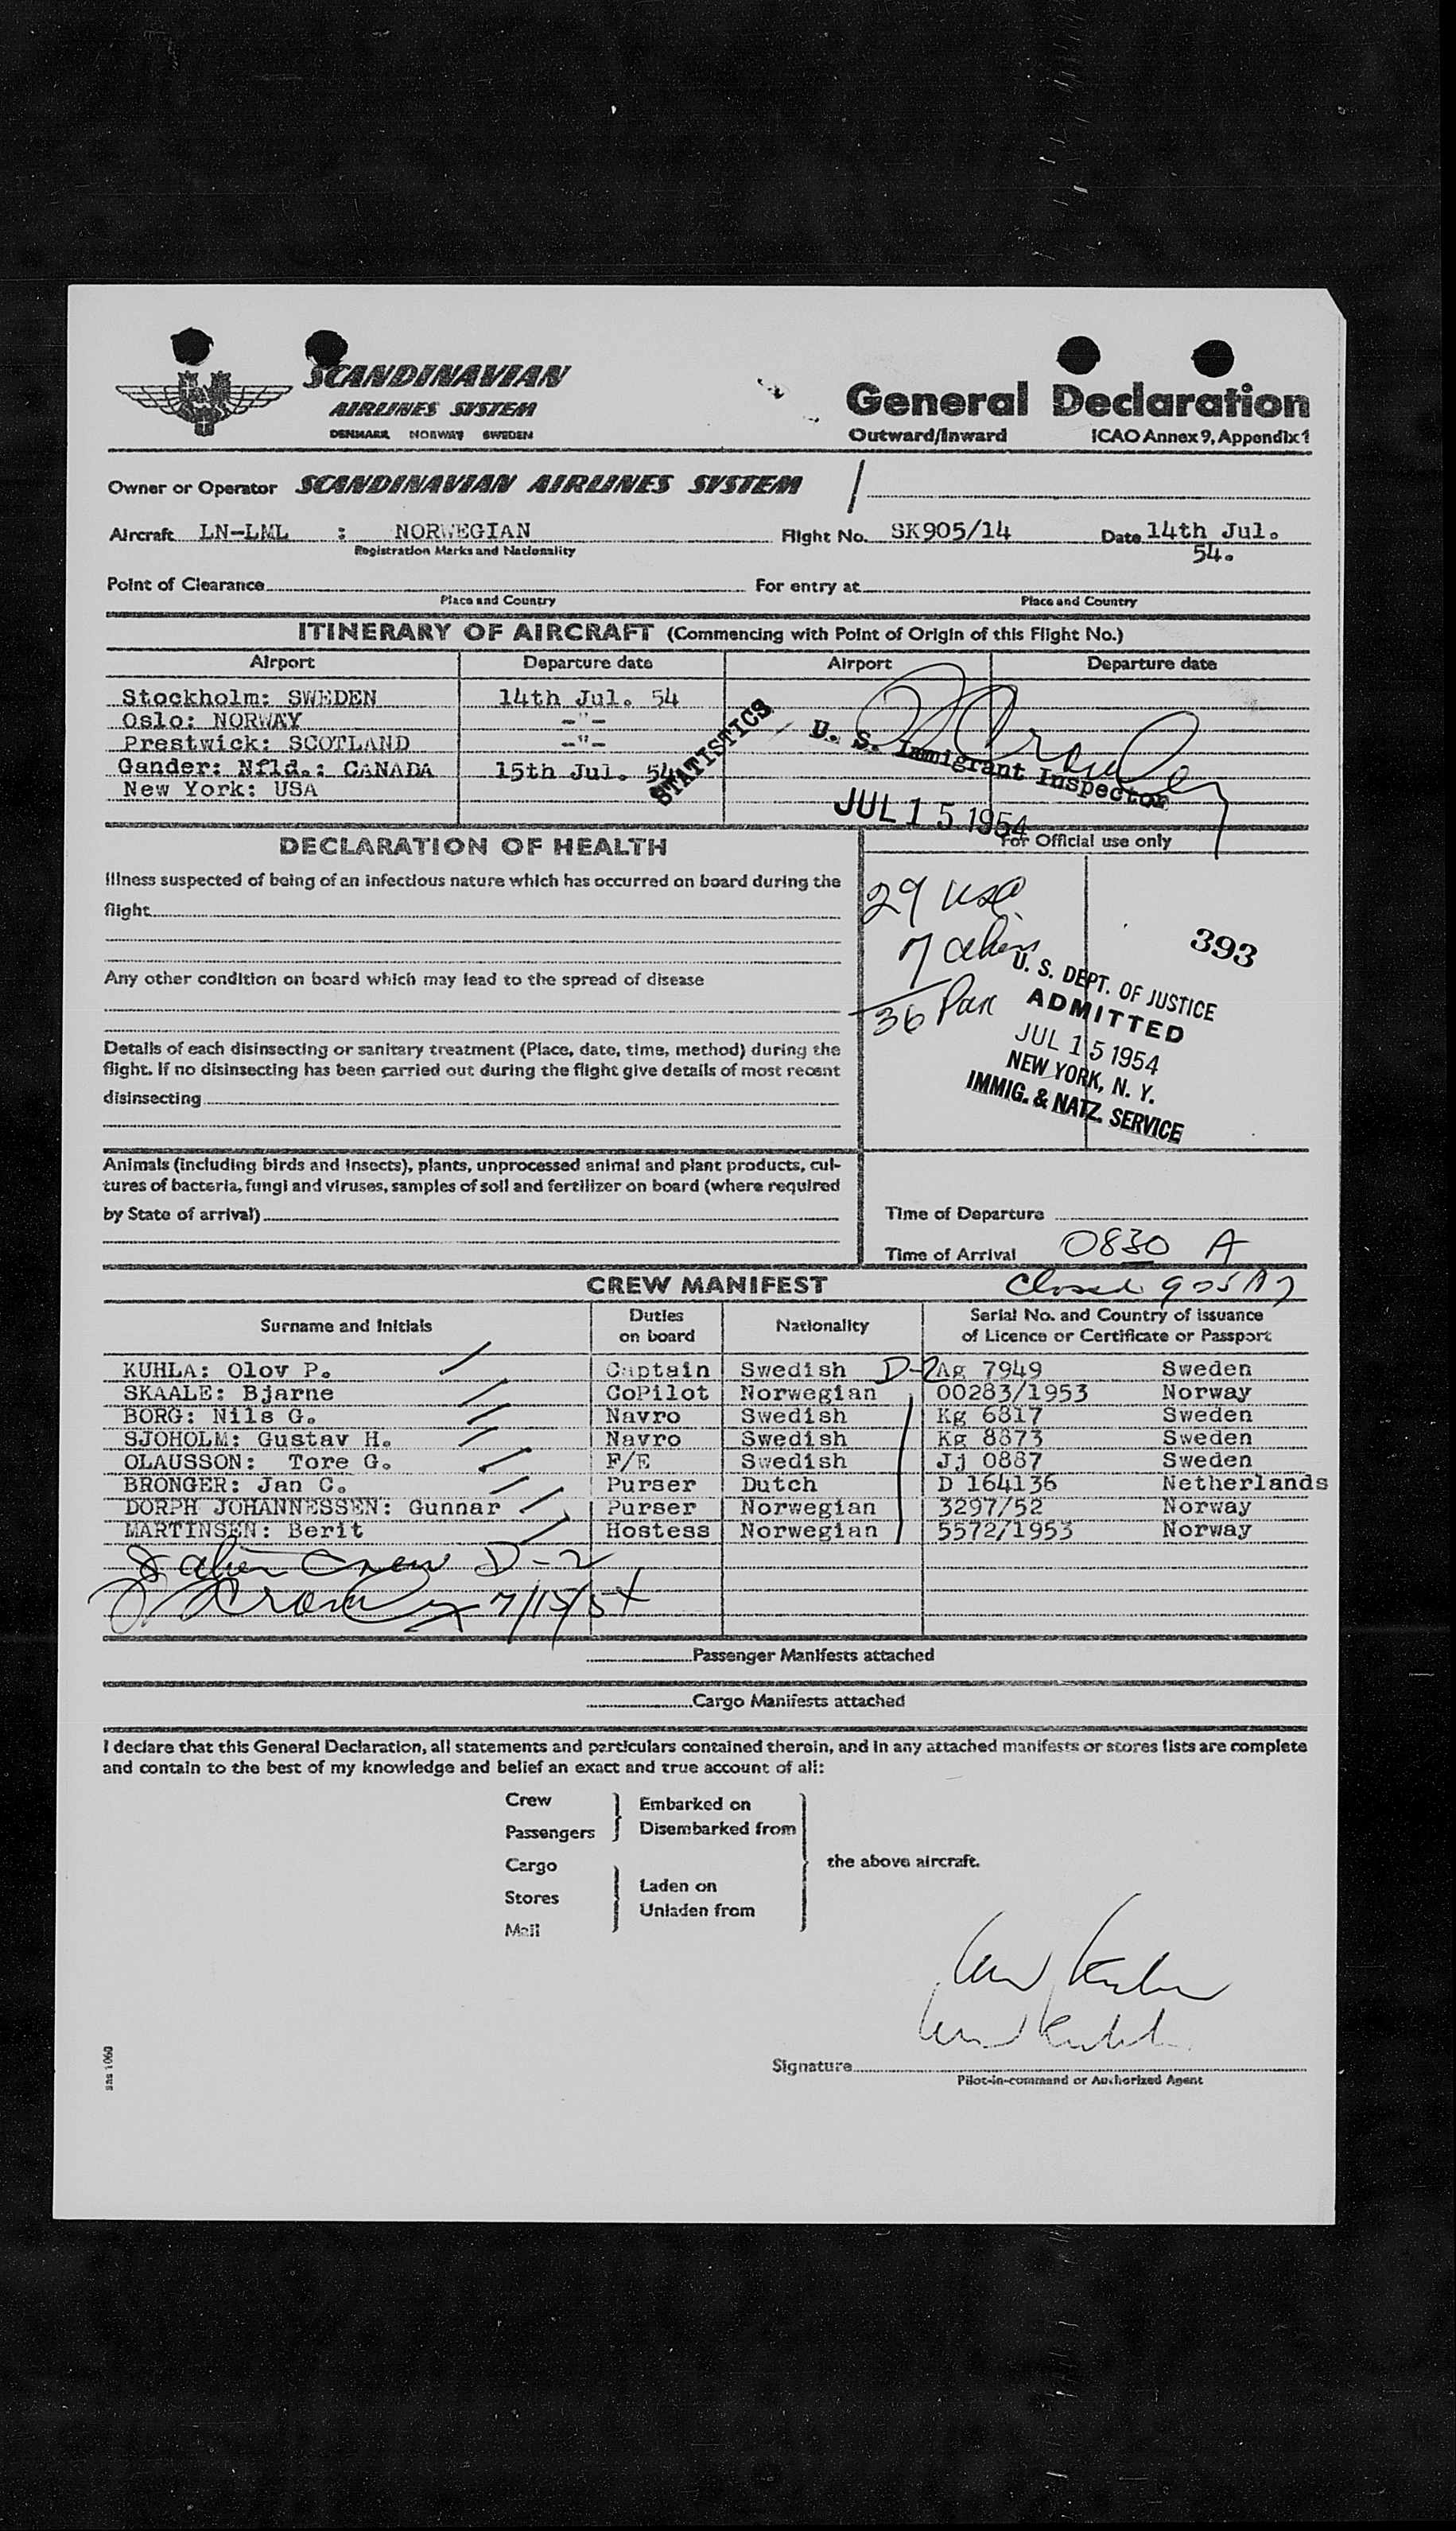 SCANDINAVIAN
AIRLINES SYSTEM
DENMARK NORWAY SWEDEN
General Declaration
Outward/Inward ICAO Annex 9, Appendix 1
Owner or Operator SCANDINAVIAN AIRLINES SYSTEM
Aircraft LN-LML : NORWEGIAN Flight No. SK905/14 Date 14th Jul. 54.
Registration Marks and Nationality
Point of Clearance For entry at
Place and Country Place and Country
ITINERARY OF AIRCRAFT (Commencing with Point of Origin of this Flight No.)
Airport Departure date Airport Departure date
Stockholm: SWEDEN 14th Jul. 54
Oslo: NORWAY -"-
Prestwick: SCOTLAND -"-
Gander: Nfld.: CANADA 15th Jul. 54
New York: USA
STATISTICS
U. S. Immigrant Inspector
JUL 15 1954
DECLARATION OF HEALTH
Illness suspected of being of an infectious nature which has occurred on board during the
flight
Any other condition on board which may lead to the spread of disease
Details of each disinsecting or sanitary treatment (Place, date, time, method) during the
flight. If no disinsecting has been carried out during the flight give details of most recent
disinsecting
Animals (including birds and insects), plants, unprocessed animal and plant products, cul-
tures of bacteria, fungi and viruses, samples of soil and fertilizer on board (where required
by State of arrival)
For Official use only
29 usc
7 aliens
36 Pax
393
U. S. DEPT. OF JUSTICE
ADMITTED
JUL 15 1954
NEW YORK, N. Y.
IMMIG. & NATZ. SERVICE
Time of Departure
Time of Arrival 0830 A
Closed 905 A
CREW MANIFEST
Surname and Initials Duties on board Nationality Serial No. and Country of issuance of Licence or Certificate or Passport
KUHLA: Olov P. Captain Swedish D-2 Ag 7949 Sweden
SKAALE: Bjarne CoPilot Norwegian 00283/1953 Norway
BORG: Nils G. Navro Swedish Kg 6817 Sweden
SJOHOLM: Gustav H. Navro Swedish Kg 8873 Sweden
OLAUSSON: Tore G. F/E Swedish Jj 0887 Sweden
BRONGER: Jan C. Purser Dutch D 164136 Netherlands
DORPH JOHANNESSEN: Gunnar Purser Norwegian 3297/52 Norway
MARTINSEN: Berit Hostess Norwegian 5572/1953 Norway
8 alien crew D-2
7/15/54
Passenger Manifests attached
Cargo Manifests attached
I declare that this General Declaration, all statements and particulars contained therein, and in any attached manifests or stores lists are complete
and contain to the best of my knowledge and belief an exact and true account of all:
Crew
Passengers
Embarked on
Disembarked from
Cargo
Stores
Mail
Laden on
Unladen from
the above aircraft.
Signature
Pilot-in-command or Authorized Agent
sas 1060